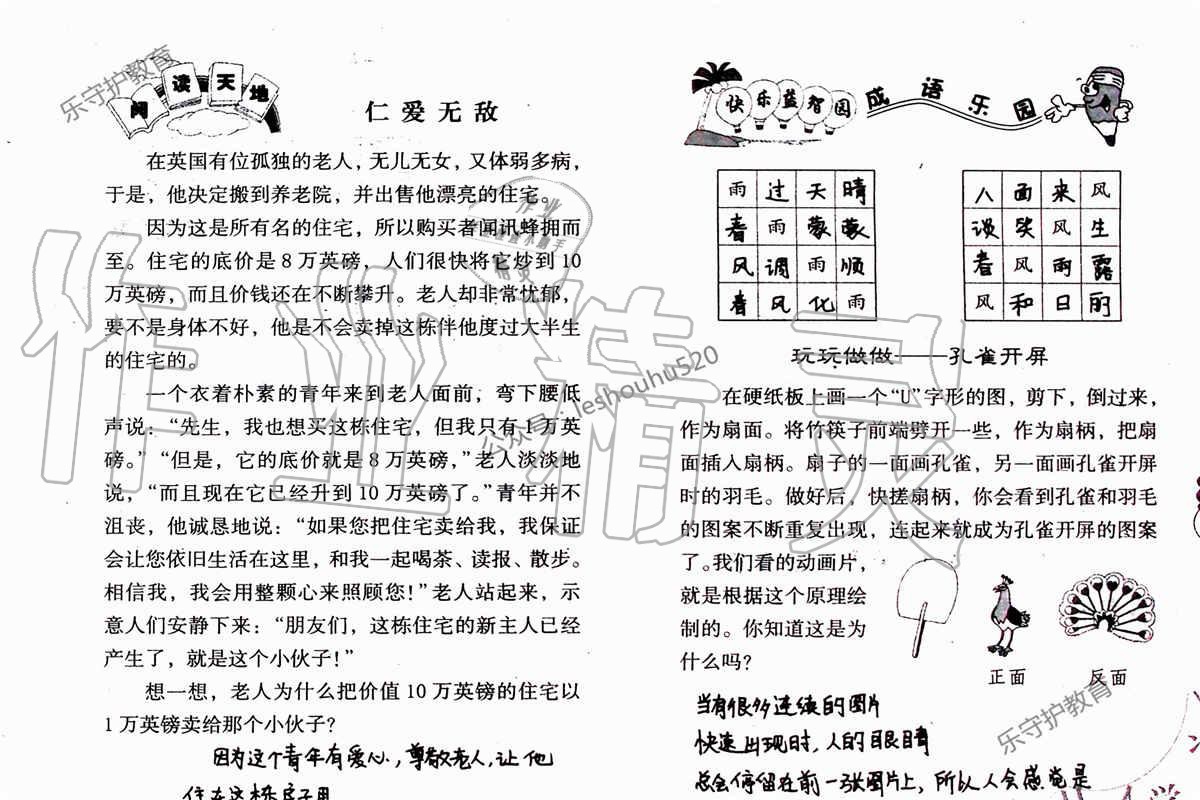 阅读天地
仁爱无敌
在英国有位孤独的老人，无儿无女，又体弱多病，
于是，他决定搬到养老院，并出售他漂亮的住宅。
因为这是所有名的住宅，所以购买者闻讯蜂拥而
至。住宅的底价是 8 万英磅，人们很快将它炒到 10
万英磅，而且价钱还在不断攀升。老人却非常忧郁，
要不是身体不好，他是不会卖掉这栋伴他度过大半生
的住宅的。
一个衣着朴素的青年来到老人面前，弯下腰低
声说：“先生，我也想买这栋住宅，但我只有 1 万英
磅。”“但是，它的底价就是 8 万英磅，”老人淡淡地
说，“而且现在它已经升到 10 万英磅了。”青年并不
沮丧，他诚恳地说：“如果您把住宅卖给我，我保证
会让您依旧生活在这里，和我一起喝茶、读报、散步。
相信我，我会用整颗心来照顾您！”老人站起来，示
意人们安静下来：“朋友们，这栋住宅的新主人已经
产生了，就是这个小伙子！”
想一想，老人为什么把价值 10 万英镑的住宅以
1 万英镑卖给那个小伙子？
因为这个青年有爱心，尊敬老人，让他
住在这栋房子里
快乐益智园
成语乐园
雨过天晴
春雨蒙蒙
风调雨顺
春风化雨
人面来风
谈笑风生
春风雨露
风和日丽
玩玩做做——孔雀开屏
在硬纸板上画一个“U”字形的图，剪下，倒过来，
作为扇面。将竹筷子前端劈开一些，作为扇柄，把扇
面插入扇柄。扇子的一面画孔雀，另一面画孔雀开屏
时的羽毛。做好后，快搓扇柄，你会看到孔雀和羽毛
的图案不断重复出现，连起来就成为孔雀开屏的图案
了。我们看的动画片，
就是根据这个原理绘
制的。你知道这是为
什么吗？
正面
反面
当有很多连续的图片
快速出现时，人的眼睛
总会停留在前一张图片上，所以人会感觉是
乐守护教育
公众号：leshouhu520
乐守护教育
作业精灵